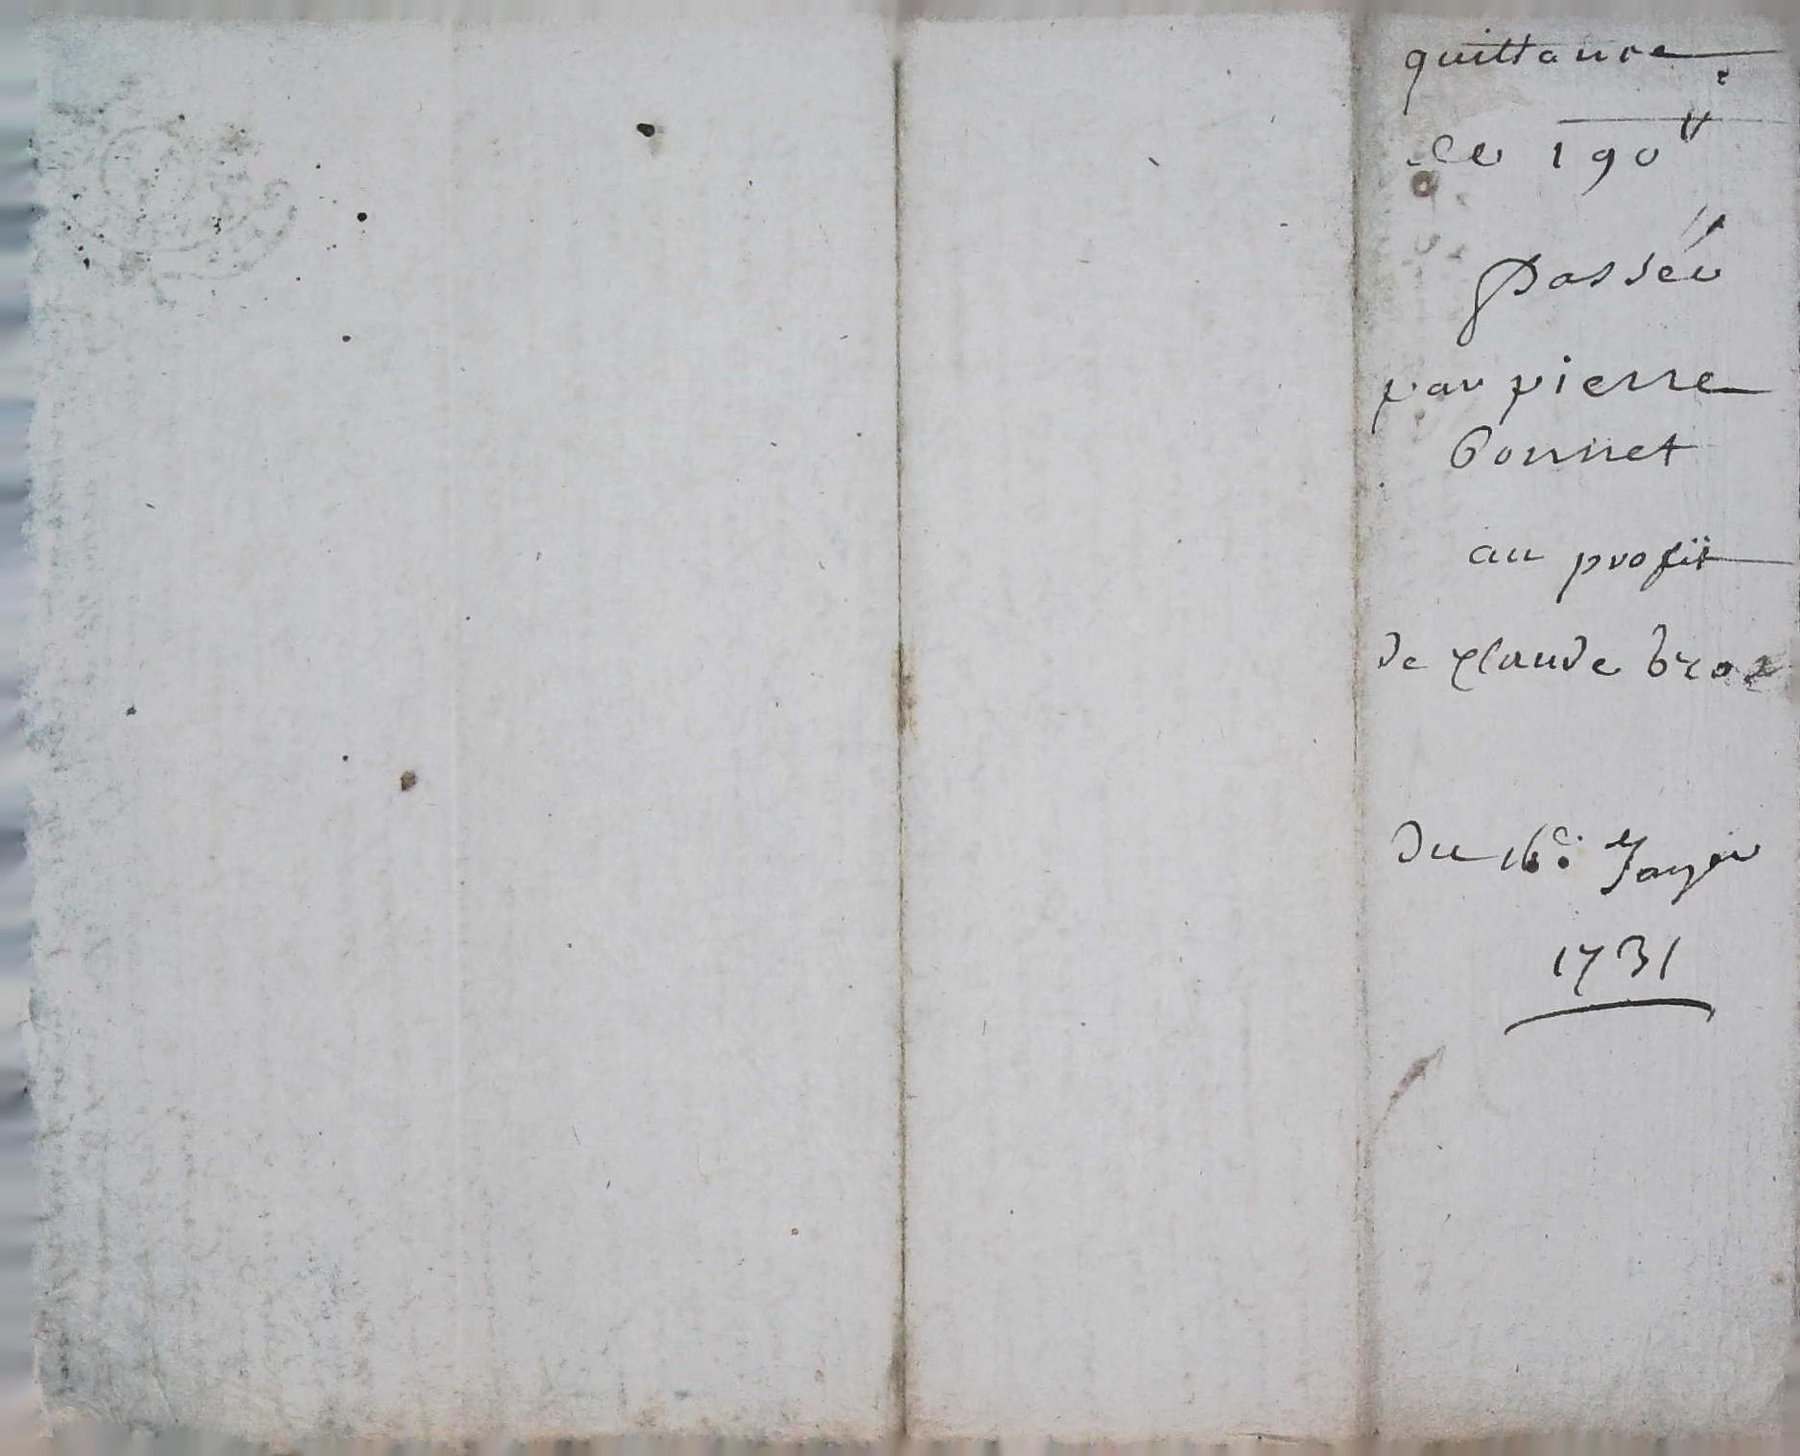 quittance
de 190 ₶
passée
par pierre
bonnet
au profit
de claude broz
du 16e. Janvier
1731